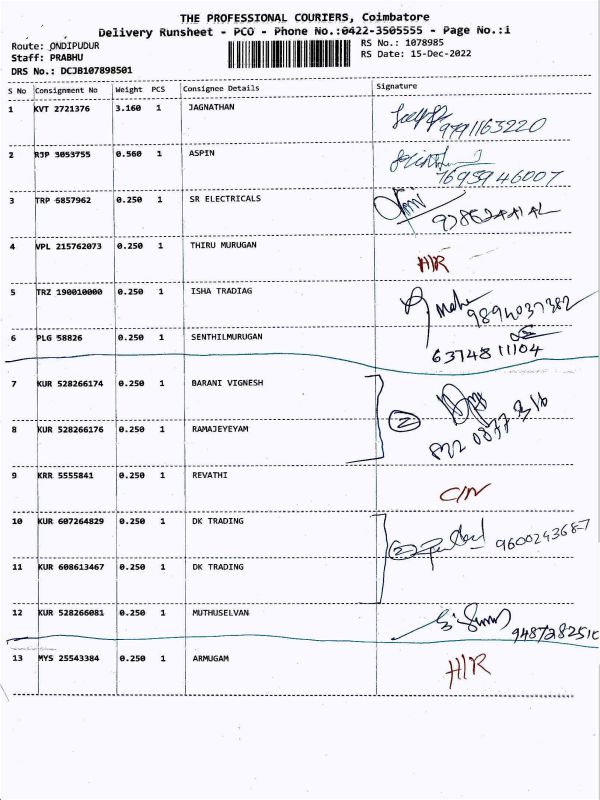 THE PROFESSIONAL COURIERS, Coimbatore
Delivery Runsheet - PCO - Phone No.:0422-3505555 - Page No.:i
Route: ONDIPUDUR
RS No.: 1078985
Staff: PRABHU
RS Date: 15-Dec-2022
DRS No.: DCJB107898501
S No Consignment No Weight PCS Consignee Details Signature
1 KVT 2721376 3.160 1 JAGNATHAN
9791163220
2 RJP 3053755 0.560 1 ASPIN
7695946007
3 TRP 6857962 0.250 1 SR ELECTRICALS
4 VPL 215762073 0.250 1 THIRU MURUGAN
H/R
5 TRZ 190010000 0.250 1 ISHA TRADIAG
9894037382
6 PLG 58826 0.250 1 SENTHILMURUGAN
6374811104
7 KUR 528266174 0.250 1 BARANI VIGNESH
2
8 KUR 528266176 0.250 1 RAMAJEYEYAM
9 KRR 5555841 0.250 1 REVATHI
C/N
10 KUR 607264829 0.250 1 DK TRADING
2 9600243687
11 KUR 608613467 0.250 1 DK TRADING
12 KUR 528266081 0.250 1 MUTHUSELVAN
13 MYS 25543384 0.250 1 ARMUGAM
H/R